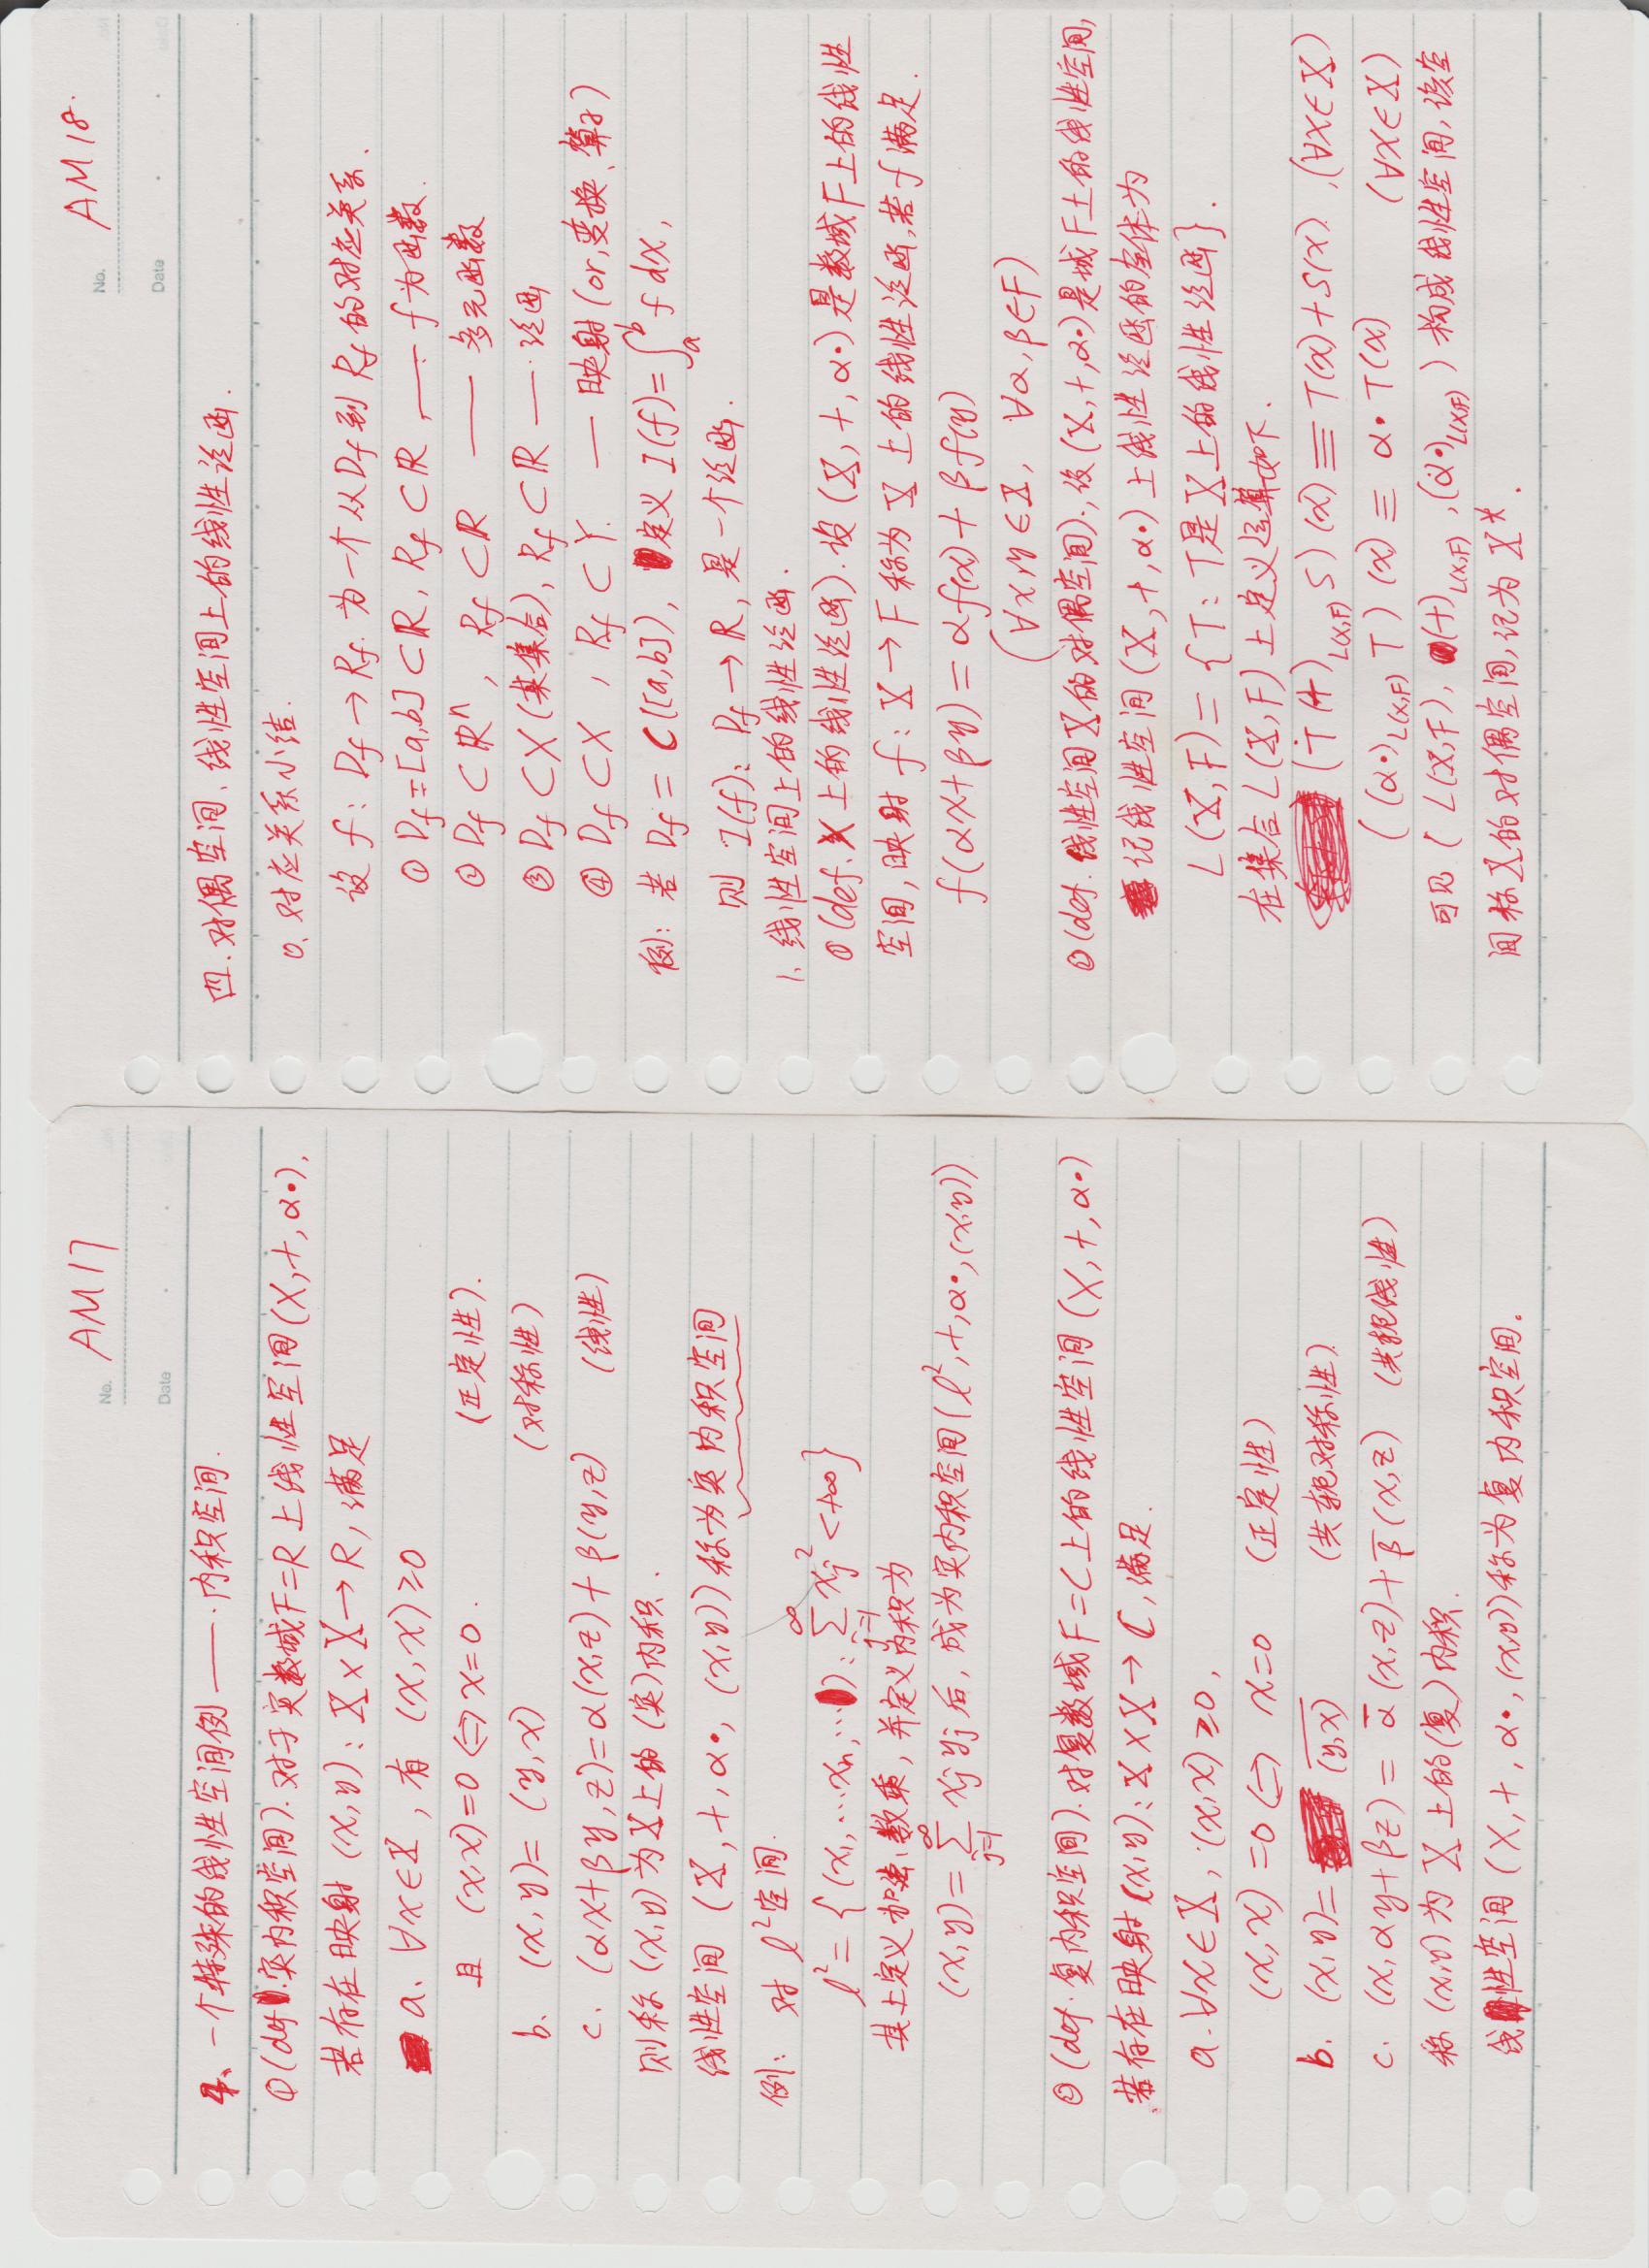 No. AM17
Date
4、一个特殊的线性空间例 —— 内积空间.
①(def1.实内积空间).对于实数域F=R上线性空间(X,+,α•),
若存在映射 (x,y): X×X→R,满足
a. ∀x∈X, 有 (x,x)≥0
且 (x,x)=0⇔x=0. (正定性).
b. (x,y)=(y,x) (对称性)
c. (αx+βy,z)=α(x,z)+β(y,z) (线性)
则称(x,y)为X上的(实)内积.
线性空间 (X,+,α•,(x,y))称为实内积空间
例: 对 l²空间.
l²={(x₁,…xₙ,…): ∑_{j=1}^∞ xⱼ²<+∞}
其上定义加法、数乘,并定义内积为
(x,y)=∑_{j=1}^∞ xⱼyⱼ后, 成为实内积空间(l²,+,α•,(x,y))
②(def.复内积空间).对复数域F=C上的线性空间(X,+,α•)
若存在映射(x,y): X×X→C,满足.
a.∀x∈X, (x,x)≥0,
(x,x)=0⇔x=0 (正定性)
b. (x,y)= \overline{(y,x)} (共轭对称性).
c. (x,αy+βz)=\overline{α}(x,z)+\overline{β}(x,z) (共轭线性)
称(x,y)为X上的(复)内积.
线性空间(X,+,α•,(x,y))称为复内积空间.
No. AM18.
Date
四.对偶空间、线性空间上的线性泛函.
0、对应关系小结.
设 f: D_f→R_f. 为一个从D_f到R_f的对应关系.
① D_f=[a,b]⊂ℝ, R_f⊂ℝ —— f为函数.
② D_f⊂ℝⁿ, R_f⊂ℝ —— 多元函数
③ D_f⊂X(某集合), R_f⊂ℝ —— 泛函
④ D_f⊂X, R_f⊂Y. — 映射(or,变换、算子)
例: 若 D_f=C([a,b]), 定义 I(f)=∫_a^b f dx,
则 I(f): D_f→R, 是一个泛函.
1、线性空间上的线性泛函.
①(def.X上的线性泛函).设(X,+,α•)是数域F上的线性
空间,映射 f: X→F称为X上的线性泛函,若f满足.
f(αx+βy)=αf(x)+βf(y)
(∀x,y∈X, ∀α,β∈F)
②(def.线性空间X的对偶空间).设(X,+,α•)是域F上的线性空间,
记线性空间(X,+,α•)上线性泛函的全体为
L(X,F)={T: T是X上的线性泛函}.
在集合L(X,F)上定义运算如下.
(T(+)_{L(X,F)}S)(x)≡T(x)+S(x). (∀x∈X)
((α•)_{L(X,F)}T)(x)≡α•T(x) (∀x∈X)
可见(L(X,F), (+)_{L(X,F)},(α•)_{L(X,F)})构成线性空间,该空
间称X的对偶空间,记为X*.